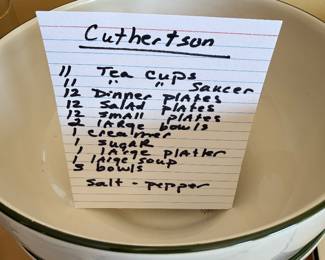 Cuthertson
11 Tea cups
11 " " Saucer
12 Dinner plates
12 Salad plates
12 small plates
2 large bowls
1 creamer
1 sugar
1 large platter
1 large soup
5 bowls
Salt - pepper